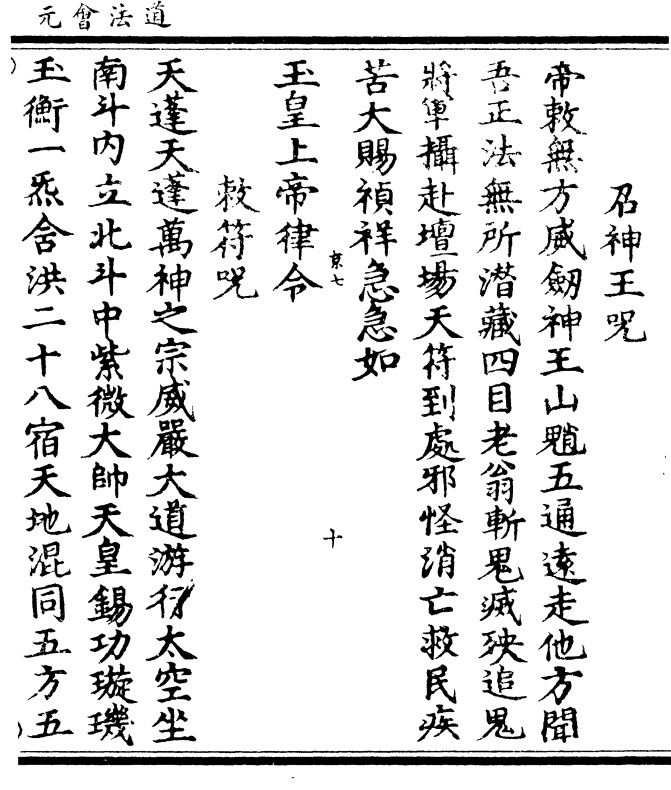 道法會元
召神王呪
帝敕無方威劒神王山魈五通遠走他方聞
吾正法無所潛藏四目老翁斬鬼滅殃追鬼
將軍攝赴壇場天符到處邪怪消亡救民疾
苦大賜禎祥急急如
京七
十
玉皇上帝律令
敕符呪
天蓬天蓬萬神之宗威嚴大道游行太空坐
南斗內立北斗中紫微大帥天皇錫功璇璣
玉衡一炁含洪二十八宿天地混同五方五